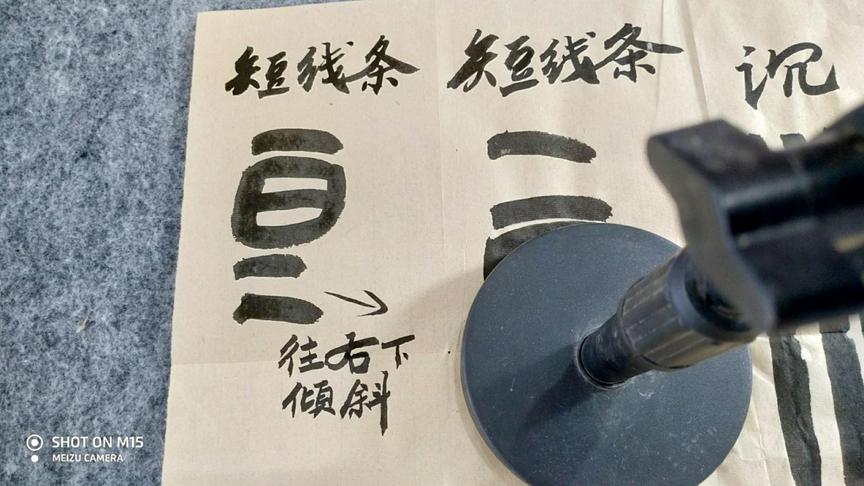 短线条 短线条 沉
往右下
倾斜
SHOT ON M15
MEIZU CAMERA